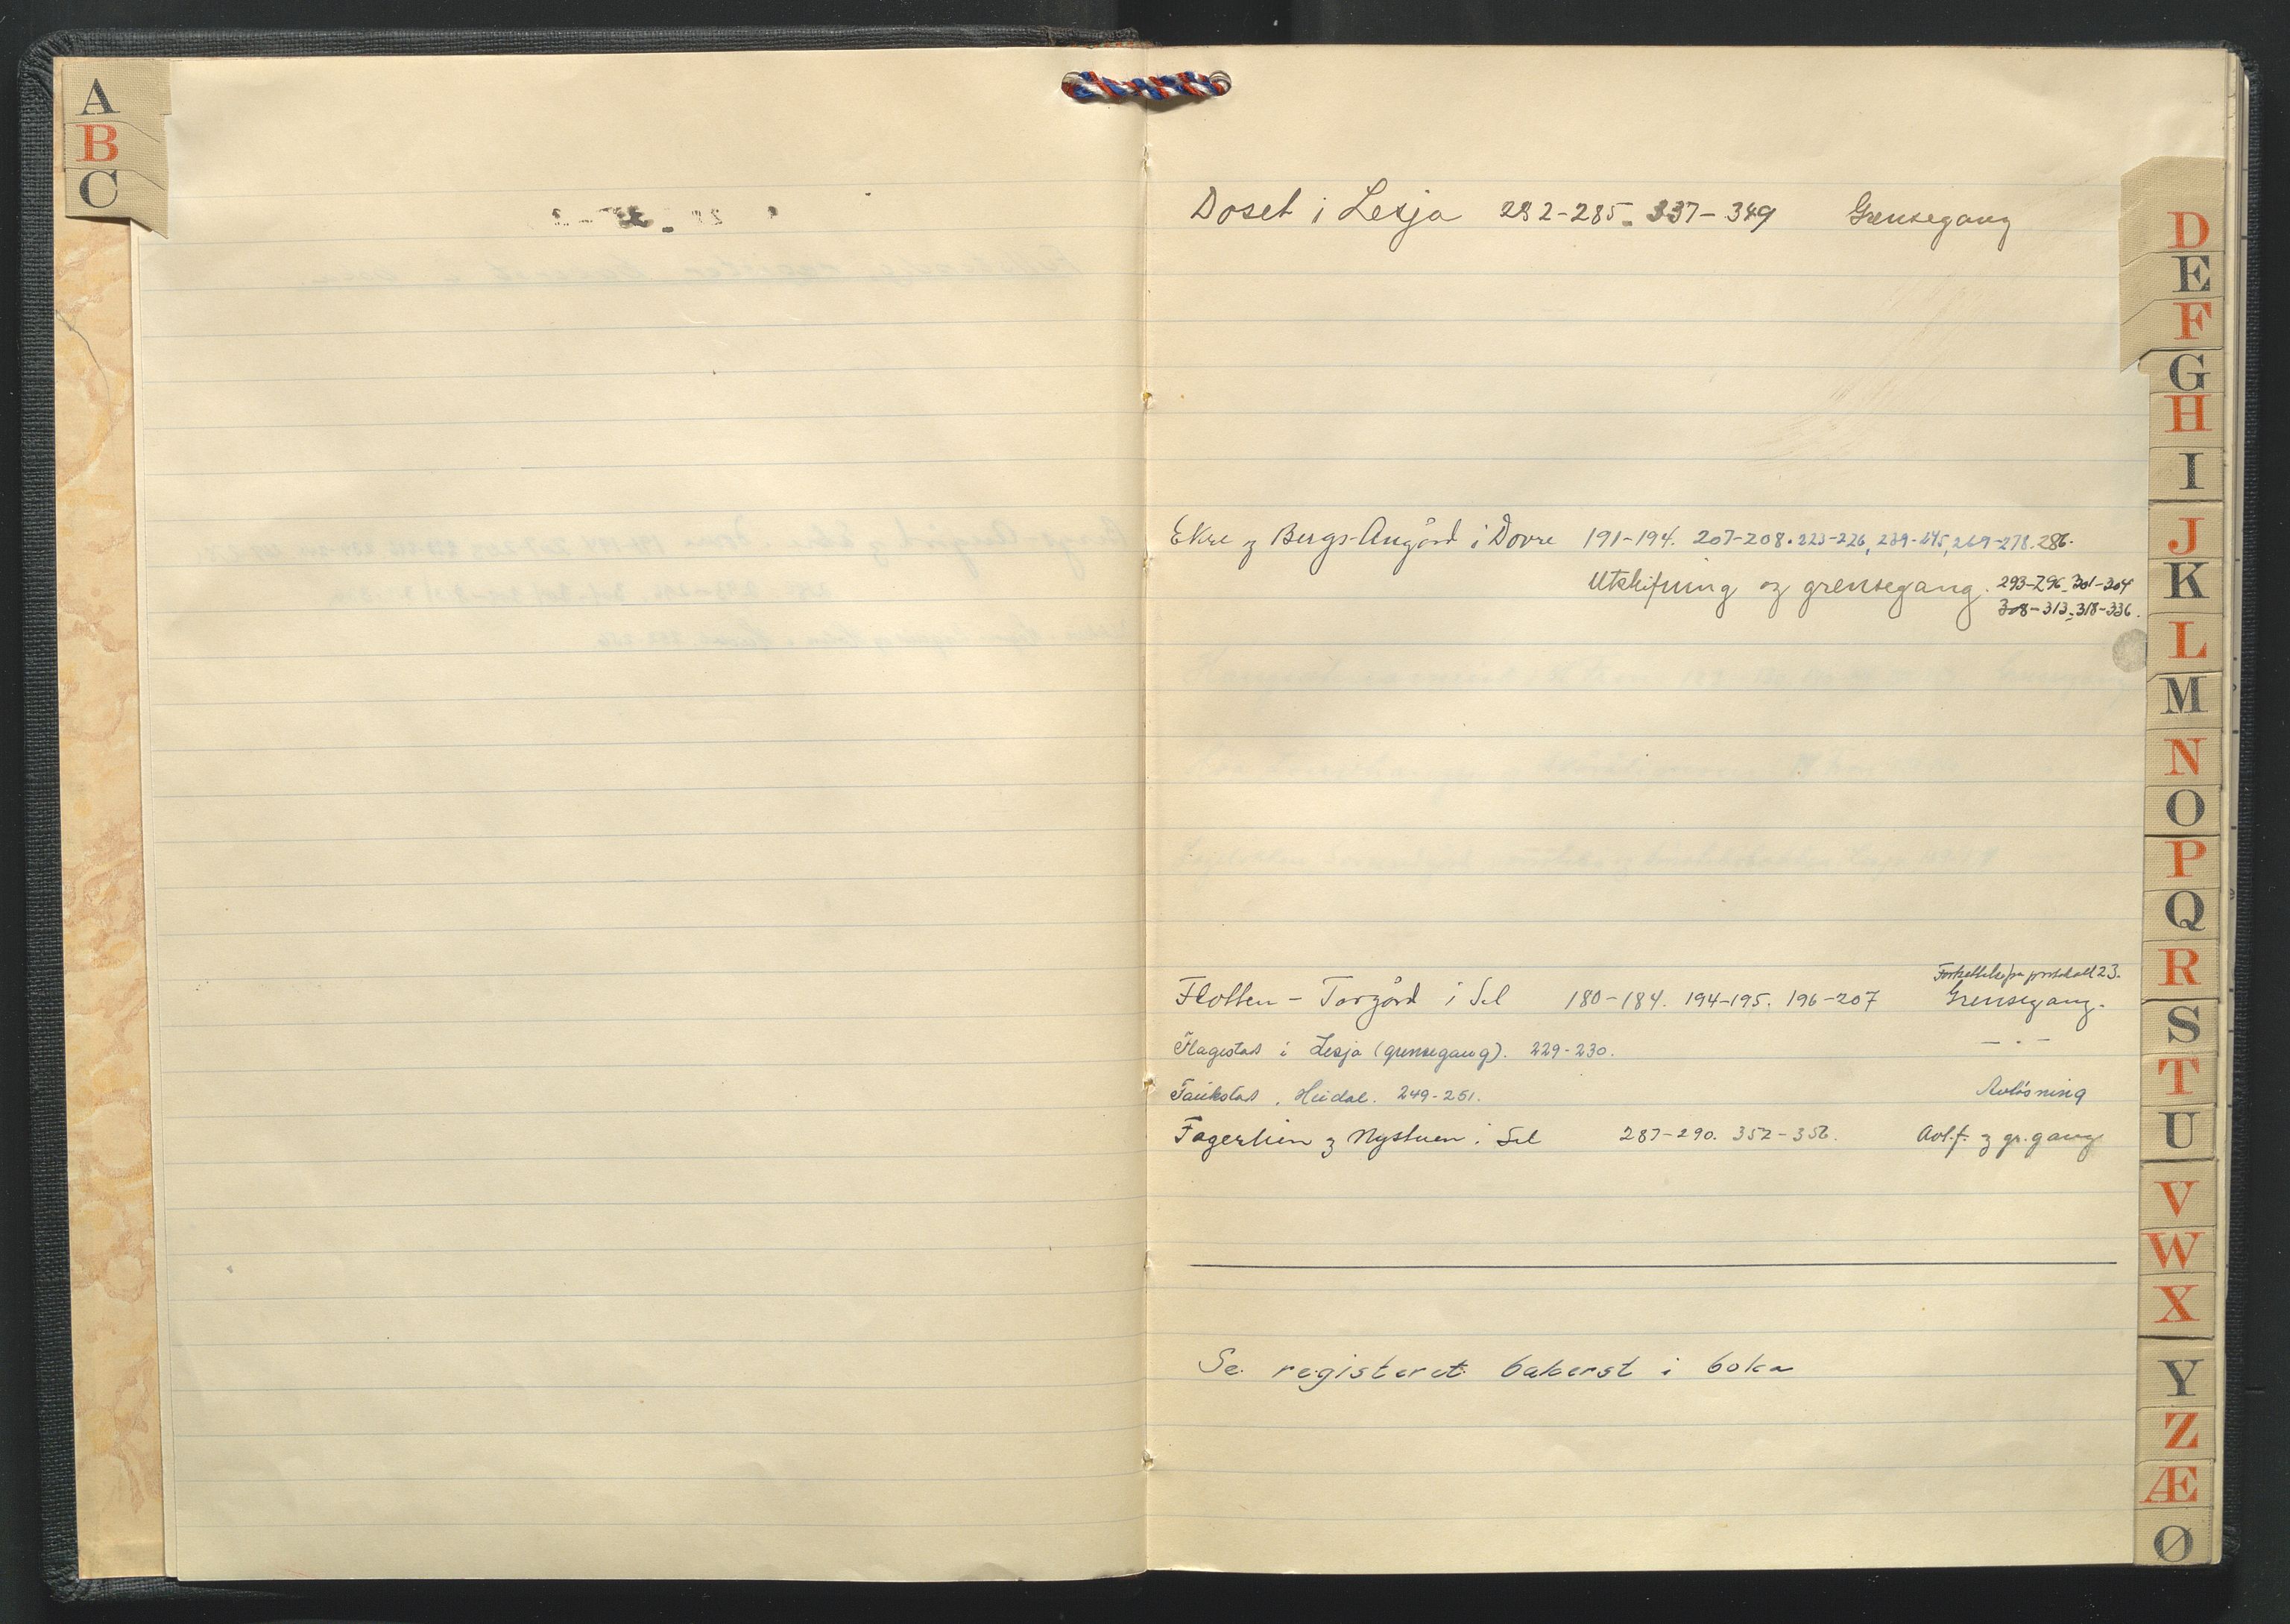 A
B
C
Doset i Lesja 282-285. 337-349 Grensegang
Ekre og Bergs-Angård i Dovre 191-194. 207-208. 223-226, 239-245, 269-278. 286.
Utskifning og grensegang. 293-296. 301-304
308-313. 318-336.
Fortsettelse på protokoll 23.
Flotten - Torgård i Sel 180-184. 194-195. 196-207 Grensegang.
Flagestad i Lesja (grensegang). 229-230. - " -
Faukstad, Heidal. 249-251. Avløsning
Fagerlien og Nystuen i Sel 287-290. 352-356. Avl.f. og gr.gang
Se registeret bakerst i boka
D
E
F
G
H
I
J
K
L
M
N
O
P
Q
R
S
T
U
V
W
X
Y
Z
Æ
Ø